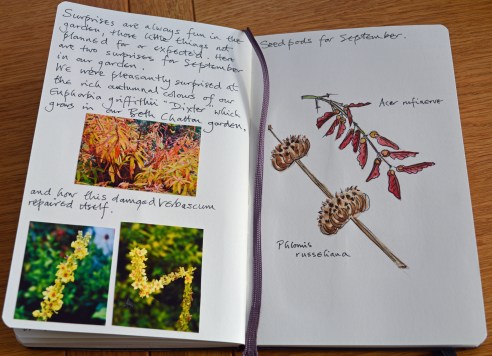 Surprises are always fun in the
garden, those little things not
planned for or expected. Here
are two surprises for September
in our garden.
We were pleasantly surprised at
the rich autumnal colours of our
Euphorbia griffithii "Dixter" which
grows in our Beth Chatton garden.
and how this damaged Verbascum
repaired itself.
Seedpods for September.
Acer rufinerve
Phlomis
russeliana